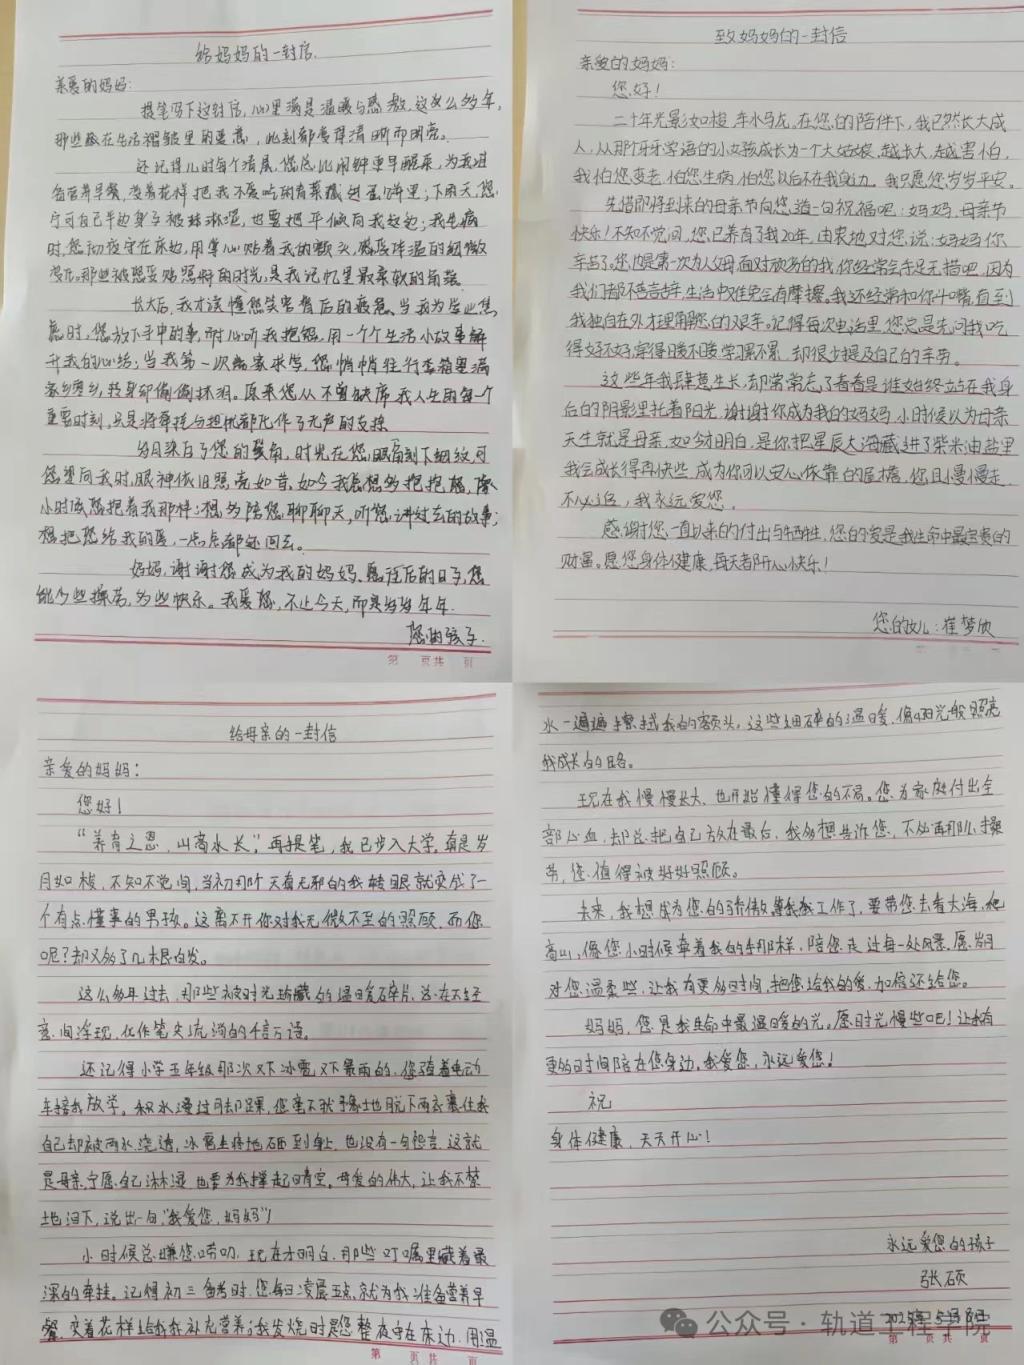 给妈妈的一封信.
亲爱的妈妈:
提笔写下这封信，心里满是温暖与感激，这么多年，
那些藏在生活褶皱里的爱意，此刻都变得清晰而明亮。
还记得儿时每个清晨，您总比闹钟更早醒来，为我准
备营养早餐，变着花样把我不爱吃的青菜藏进蛋饼里；下雨天，您
宁可自己半边身子被雨淋湿，也要把伞倾向我这边；我生病
时，您彻夜守在床边，用掌心贴着我的额头，感受体温的细微
变化。那些被您妥贴照料的时光，是我记忆里最柔软的角落。
长大后，我才读懂您笑容背后的疲惫。当我为学业焦
虑时，您放下手中的事，耐心听我抱怨，用一个个生活小故事解
开我的心结；当我第一次离家求学，您悄悄往行李箱里满
家乡，转身却偷偷抹泪。原来您从不曾缺席我人生的每一个
重要时刻，只是将牵挂与担忧都化作了无声的支持
岁月染白了您的鬓角，时光在您眼角刻下细纹，可
您望向我时，眼神依旧明亮如昔。如今我总想多抱抱您，像
小时候您抱着我那样；想多陪您聊聊天，听您讲过去的故事；
想把您给我的爱，一点点都还回去。
妈妈，谢谢您成为我的妈妈。愿往后的日子，您
能少些操劳，多些快乐。我爱您，不止今天，而是岁岁年年.
您的孩子.
第 页共 页
致妈妈的一封信
亲爱的妈妈:
您好！
二十年光影如梭，车水马龙。在您的陪伴下，我已然长大成
人，从那个牙牙学语的小女孩成长为一个大姑娘，越长大，越害怕，
我怕您变老，怕您生病，怕您以后不在我身边。我只愿您岁岁平安。
先借即将到来的母亲节向您道一句祝福吧：妈妈，母亲节
快乐！不知不觉间，您已养育了我20年，由衷地对您说：妈妈你
辛苦了。您也是第一次为人母，面对的我，你经常会手足无措吧，因为
我们都不善言辞，生活中难免会有摩擦。我还经常和你斗嘴，直到
我独自在外才理解您的艰辛。记得每次电话里，您总是先问我吃
得好不好，穿得暖不暖，学习累不累，却很少提及自己的辛劳。
这些年我肆意生长，却常常忘了看看是谁始终立在我身
后的阴影里托着阳光，谢谢你成为我的妈妈，小时候以为母亲
天生就是母亲，如今才明白，是你把星辰大海藏进了柴米油盐里
我会成长得再快些，成为你可以安心依靠的屋檐，您且慢慢走，
不必追，我永远爱您。
感谢您一直以来的付出与牺牲，您的爱是我生命中最宝贵的
财富。愿您身体健康，每天都开心快乐！
您的女儿：崔梦欣
给母亲的一封信
亲爱的妈妈：
您好！
“养育之恩，山高水长”，再提笔，我已步入大学。真是岁
月如梭，不知不觉间，当初那个天真无邪的我转眼就变成了一
个有点懂事的男孩。这离不开你对我无微不至的照顾，而您
呢？却又多了几根白发。
这么多年过去，那些被时光珍藏的温暖碎片，总在不经
意间浮现，化作笔尖流淌的千言万语。
还记得小学五年级那次又下冰雹又下暴雨的，您骑着电动
车接我放学。积水漫过脚踝，您毫不犹豫地脱下雨衣裹住我
自己却被雨水浇透，冰雹生疼地砸到身上，也没有一句怨言。这就
是母亲，宁愿自己淋湿也要为我撑起晴空。母爱的伟大，让我不禁
地泪下，说出一句，“我爱您，妈妈”！
小时候总嫌您唠叨，现在才明白，那些叮嘱里藏着最
深的牵挂。记得初三备考时，您每日凌晨五点，就为我准备营养早
餐，变着花样给我补充营养；我发烧时是您整夜守在床边，用温
第 页共 页
水一遍遍擦拭我的额头，这些细碎的温暖，像阳光般照亮
我成长的路。
现在我慢慢长大，也开始懂得您的不易。您为家庭付出全
部心血，却总把自己放在最后，我多想告诉您，不必再那么操
劳，您值得被好好照顾。
未来，我想成为您的骄傲，等我工作了，要带您去看大海，爬
高山，像您小时候牵着我的手那样，陪您走过每一处风景，愿岁月
对您温柔些，让我有更多时间，把您给我的爱，加倍还给您。
妈妈，您是我生命中最温暖的光。愿时光慢些吧！让我有
更多时间陪在您身边，我爱您，永远爱您！
祝
身体健康，天天开心！
永远爱您的孩子
张硕
2025年5月8日
公众号·轨道工程学院
第 页共 页